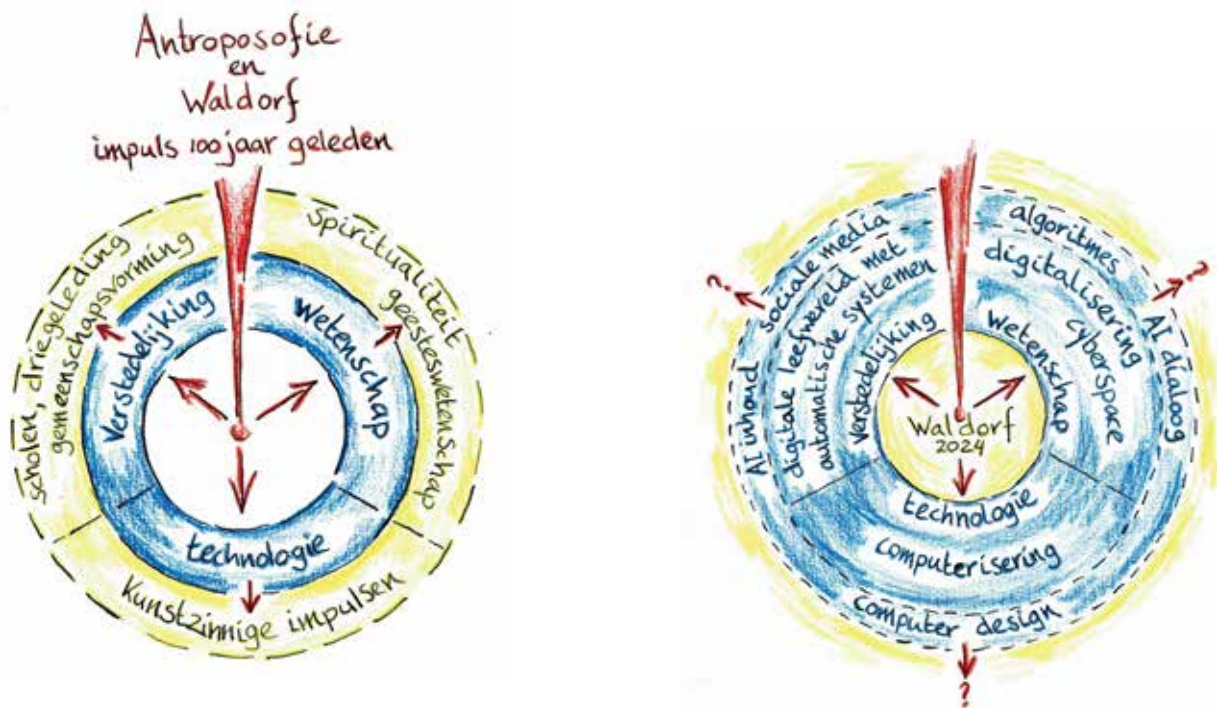 Antroposofie
en
Waldorf
impuls 100 jaar geleden
scholen, driegeleding
gemeenschapsvorming
Spiritualiteit
geesteswetenschap
Verstedelijking
wetenschap
technologie
Kunstzinnige impulsen
AI inhoud sociale media
digitale leefwereld met
automatische systemen
verstedelijking
algoritmes AI dialoog
digitalisering cyberspace
wetenschap
Waldorf
2024
technologie
computerisering
computer design
?
?
?